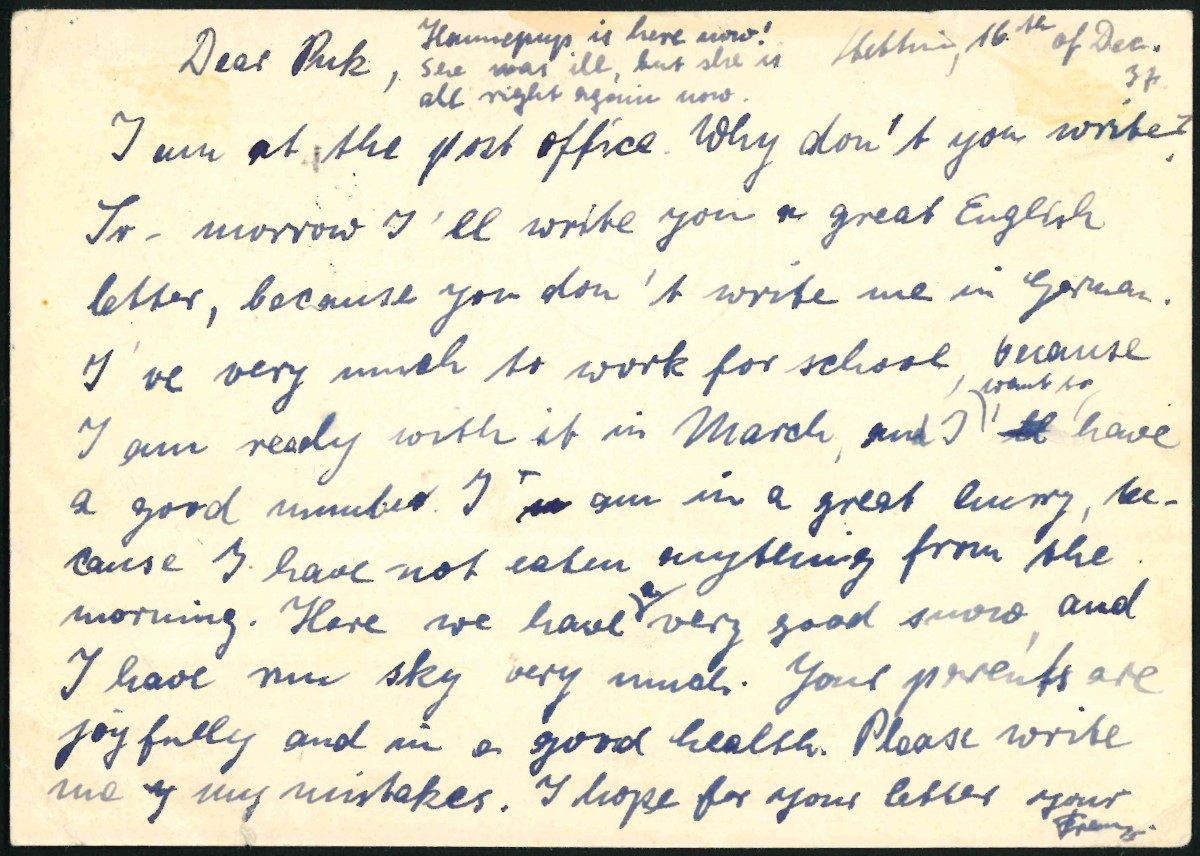 Dear Puk,
Hannepup is here now!
She was ill, but she is
all right again now.
Stettin, 16th of Dec.
37
I am at the post office. Why don't you write?
To-morrow I'll write you a great English
letter, because you don't write me in German.
I've very much to work for school, because
I am ready with it in March, and I want to have
a good number. I am in a great hurry, be-
cause I have not eaten anything from the
morning. Here we have a very good snow, and
I have run sky very much. Your parents are
joyfully and in a good health. Please write
me my mistakes. I hope for your letter your